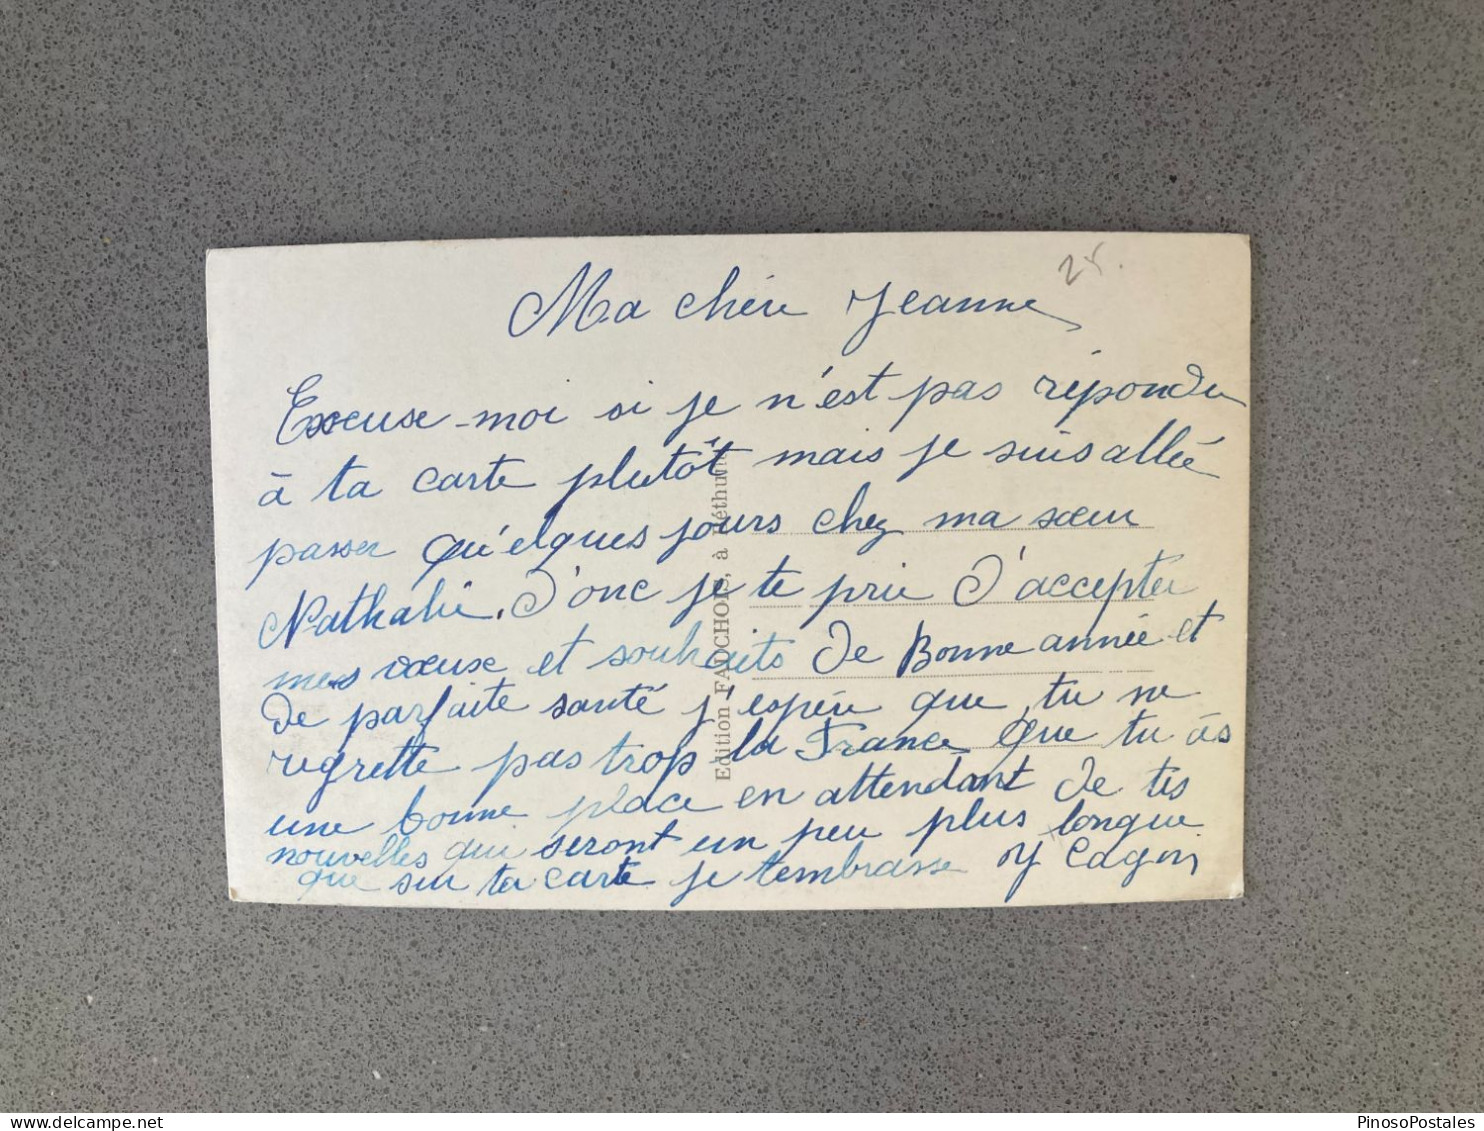 25.
Ma chère Jeanne
Excuse-moi si je n'est pas répondu
à ta carte plutôt mais je suis allée
passer qu'elques jours chez ma sœur
Nathalie. D'onc je te prie d'accepter
mes vœuxe et souhaits de Bonne année et
de parfaite santé j'espère que tu ne
regrette pas trop la France Que tu ás
une bonne place en attendant de tes
nouvelles qui seront un peu plus longue
que sur ta carte je t'embrasse
Edition FAUCHOIS, à Béthune
PinosoPostales